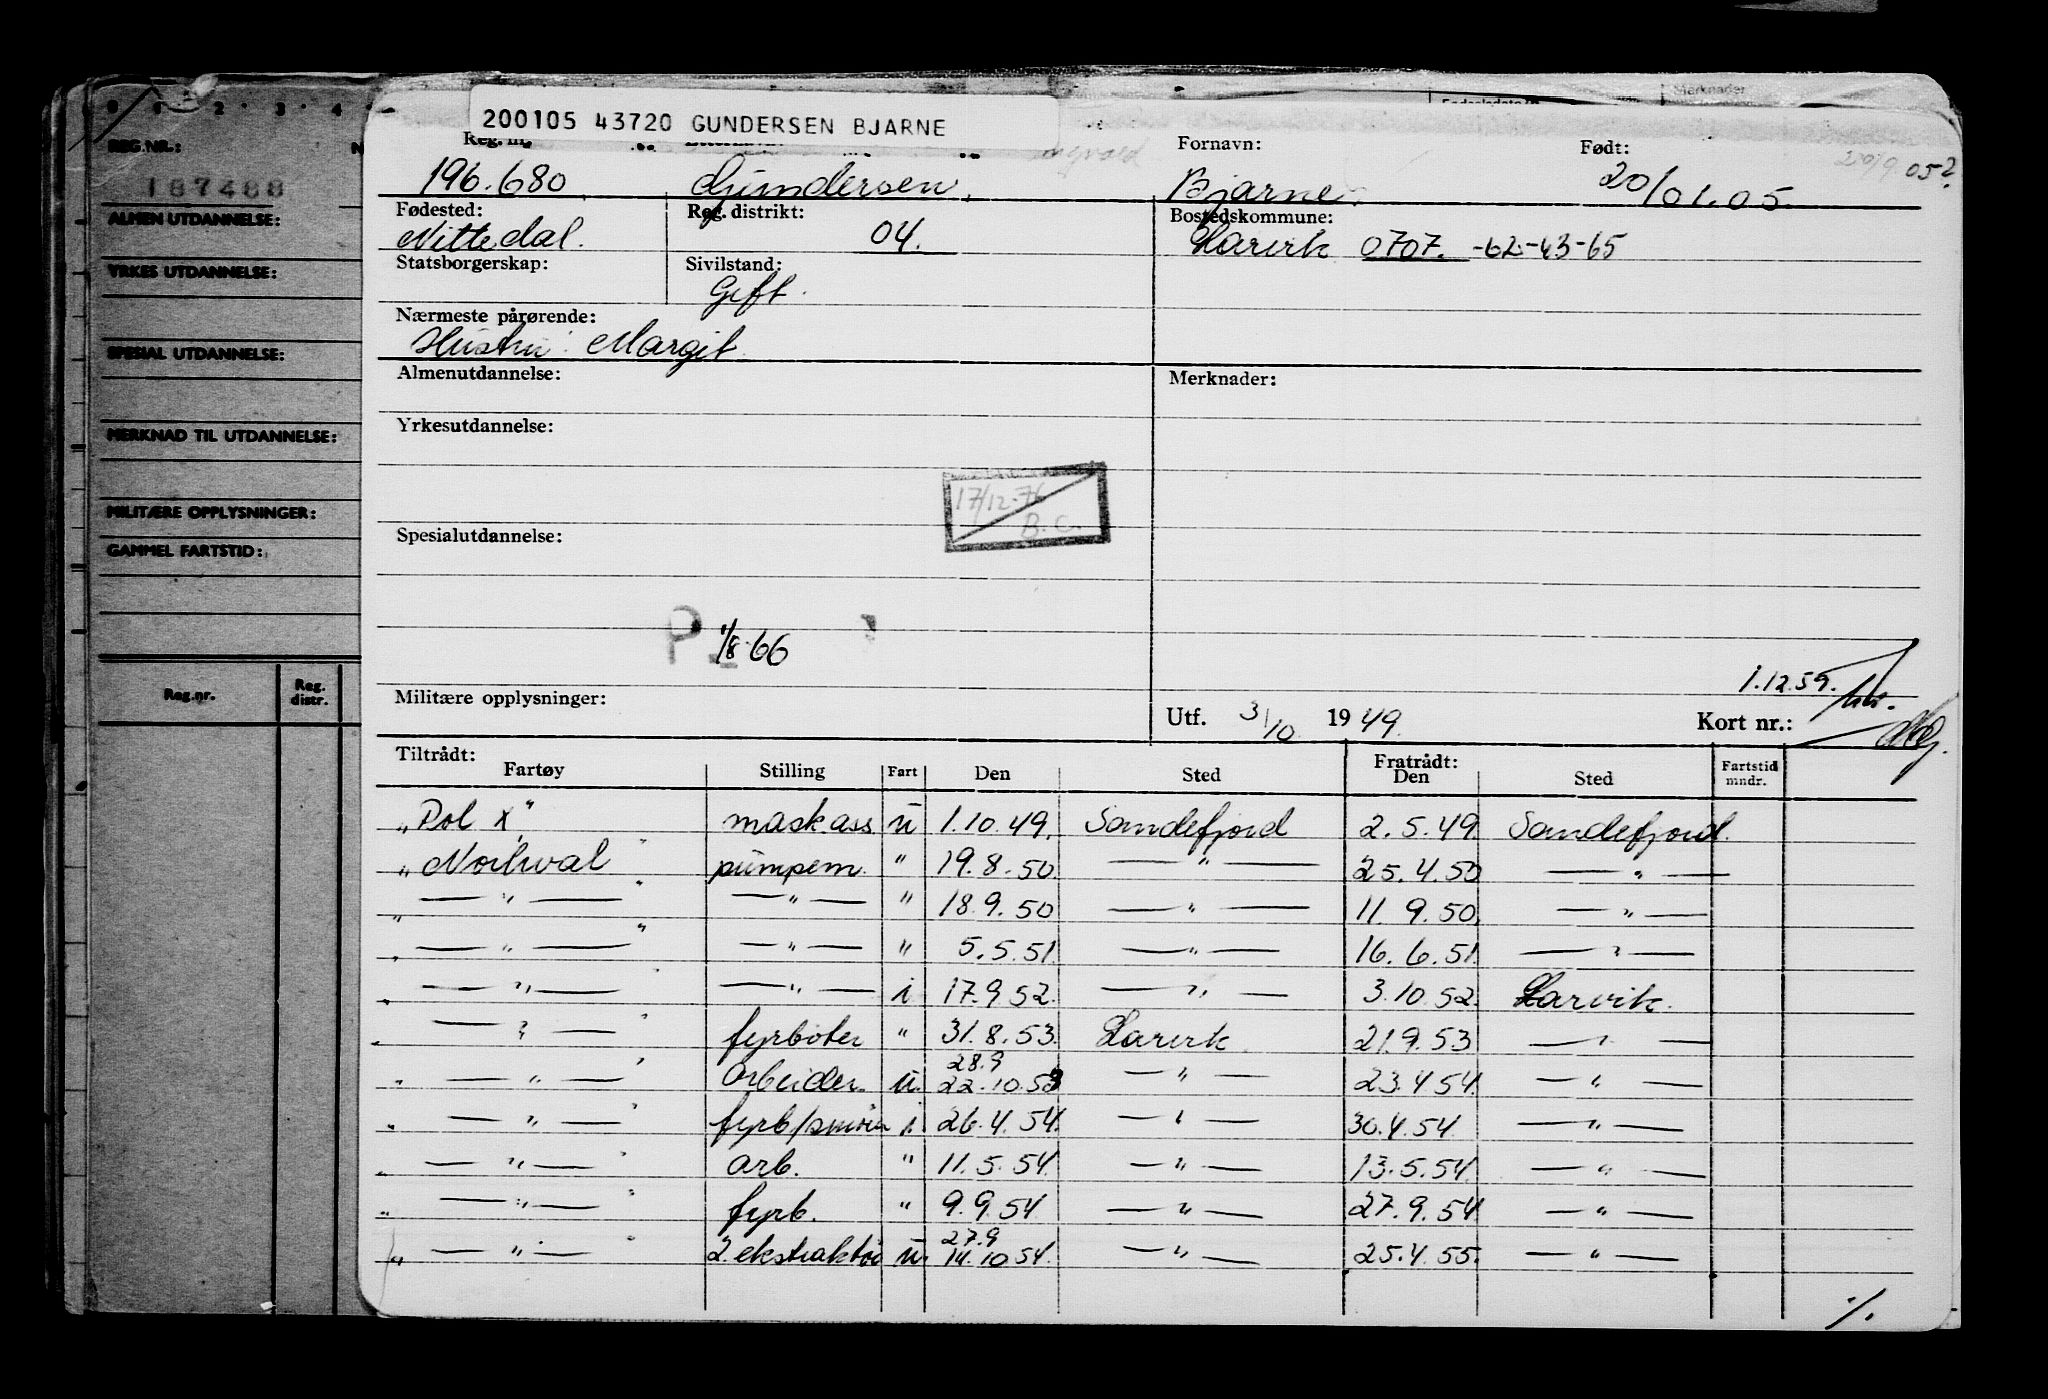 Merknader
0 1 2 3 4
200105 43720 GUNDERSEN BJARNE
REG.NR.:
187488
ALMEN UTDANNELSE:
YRKES UTDANNELSE:
SPESIAL UTDANNELSE:
MERKNAD TIL UTDANNELSE:
MILITÆRE OPPLYSNINGER:
GAMMEL FARTSTID:
Reg.nr. Reg. distr.
Reg. nr. Fornavn: Født:
196.680 Gundersen Bjarne. 20/01.05. 20/9.05?
Fødested: Reg. distrikt: Bostedskommune:
Nittedal. 04. Larvik 0707. -62-43-65
Statsborgerskap: Sivilstand:
Gift.
Nærmeste pårørende:
Hustru: Margit
Almenutdannelse: Merknader:
Yrkesutdannelse:
17/12-76
B.C.
Spesialutdannelse:
P 1/8-66
1.12.59.
Militære opplysninger:
Utf. 31/10 1949. Kort nr.:
Tiltrådt: Fratrådt:
Fartøy Stilling Fart Den Sted Den Sted Fartstid mndr.
"Pol X" mask.ass u 1.10.49. Sandefjord 2.5.49. Sandefjord.
"Norhval" pumpem. " 19.8.50. — " — 25.4.50 — " —
" — " — " — " — " 18.9.50 — " — 11.9.50. — " —
" — " — " — " — " 5.5.51. — " — 16.6.51. — " —
" — " — " — " — i 17.9.52. — " — 3.10.52. Larvik.
" — " — " fyrbøter " 31.8.53. Larvik. 21.9.53 — " —
28.9
" — " — " arbeider u. 22.10.53 — " — 23.4.54. — " —
" — " — " fyrb/smører i. 26.4.54. — " — 30.4.54 — " —
" — " — " arb. " 11.5.54. — " — 13.5.54. — " —
" — " — " fyrb. " 9.9.54 — " — 27.9.54 — " —
27.9
" — " — " 2. ekstraktør u. 14.10.54. — " — 25.4.55. — " —
./.